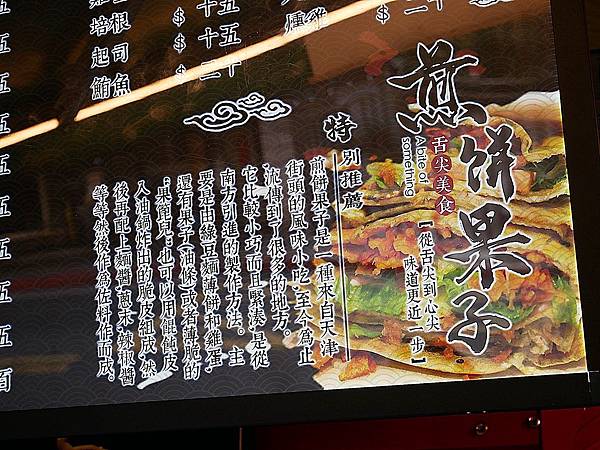 煎餅果子
舌尖美食
A bite of
something
【從舌尖到心尖
味道更近一步】
特別推薦
煎餅果子是一種來自天津
街頭的風味小吃,至今為止
流傳到了很多的地方。
它比較小巧而且緊湊,是從
南方引進的製作方法。主
要是由綠豆麵薄餅和雞蛋,
還有果子(油條)或者薄脆的
「果篦兒」;也可以用餛飩皮
入油鍋炸出的脆皮組成,然
後再配上麵醬、蔥末、辣椒醬
等等然後作為佐料作而成。
燻雞
$五十五
$十五
$十二
根司魚
培起鮪
五
五
五
五
五
五
五
百